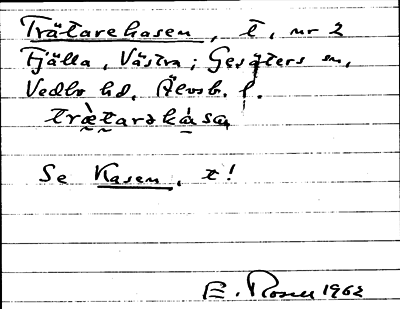 Trätarekasen, t, nr 2
Fjälla, Västra; Gesäters sn,
Vedbo hd. Älvsb. l.
trætarəkàsa
Se Kasen, t!
E. Rosell 1962